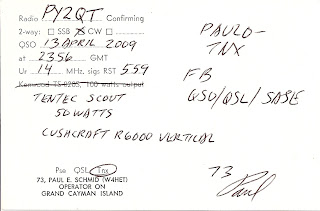 Radio PY2QT Confirming
2-way: □ SSB ☒ CW □
QSO 13 APRIL 2009
at 2356 GMT
Ur 14 MHz, sigs RST 559
Kenwood TS-820S, 100 watts output
TENTEC SCOUT
50 WATTS
CUSHCRAFT R6000 VERTICAL
Pse QSL Tnx
73, PAUL E. SCHMID (W4HET)
OPERATOR ON
GRAND CAYMAN ISLAND
PAULO-
TNX
FB
QSO/QSL/SASE
73
Paul